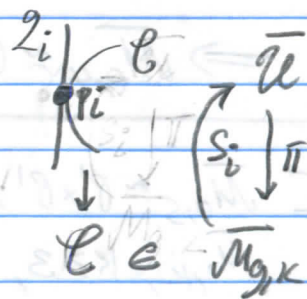 𝓛i 𝒞 𝒰̄
pi Si π
𝒞 ∈ M̄g,k